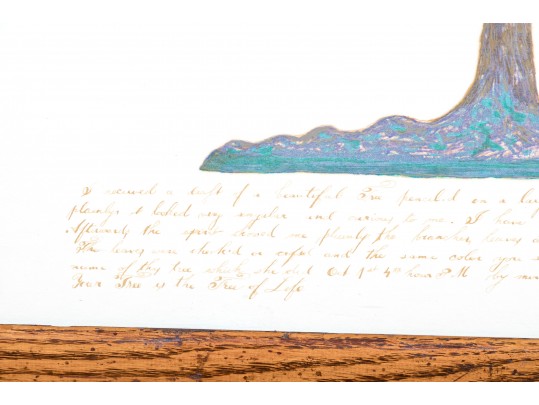 I received a draft of a beautiful Tree penciled on a
plainly it looked very singular and curious to me. I have
Afterward the spirit showed me plainly the branches, leaves
The leaves were checked or cafed and the same color you
name of this tree which she did Oct 1st 4th hour P.M. by
Your Tree is the Tree of Life